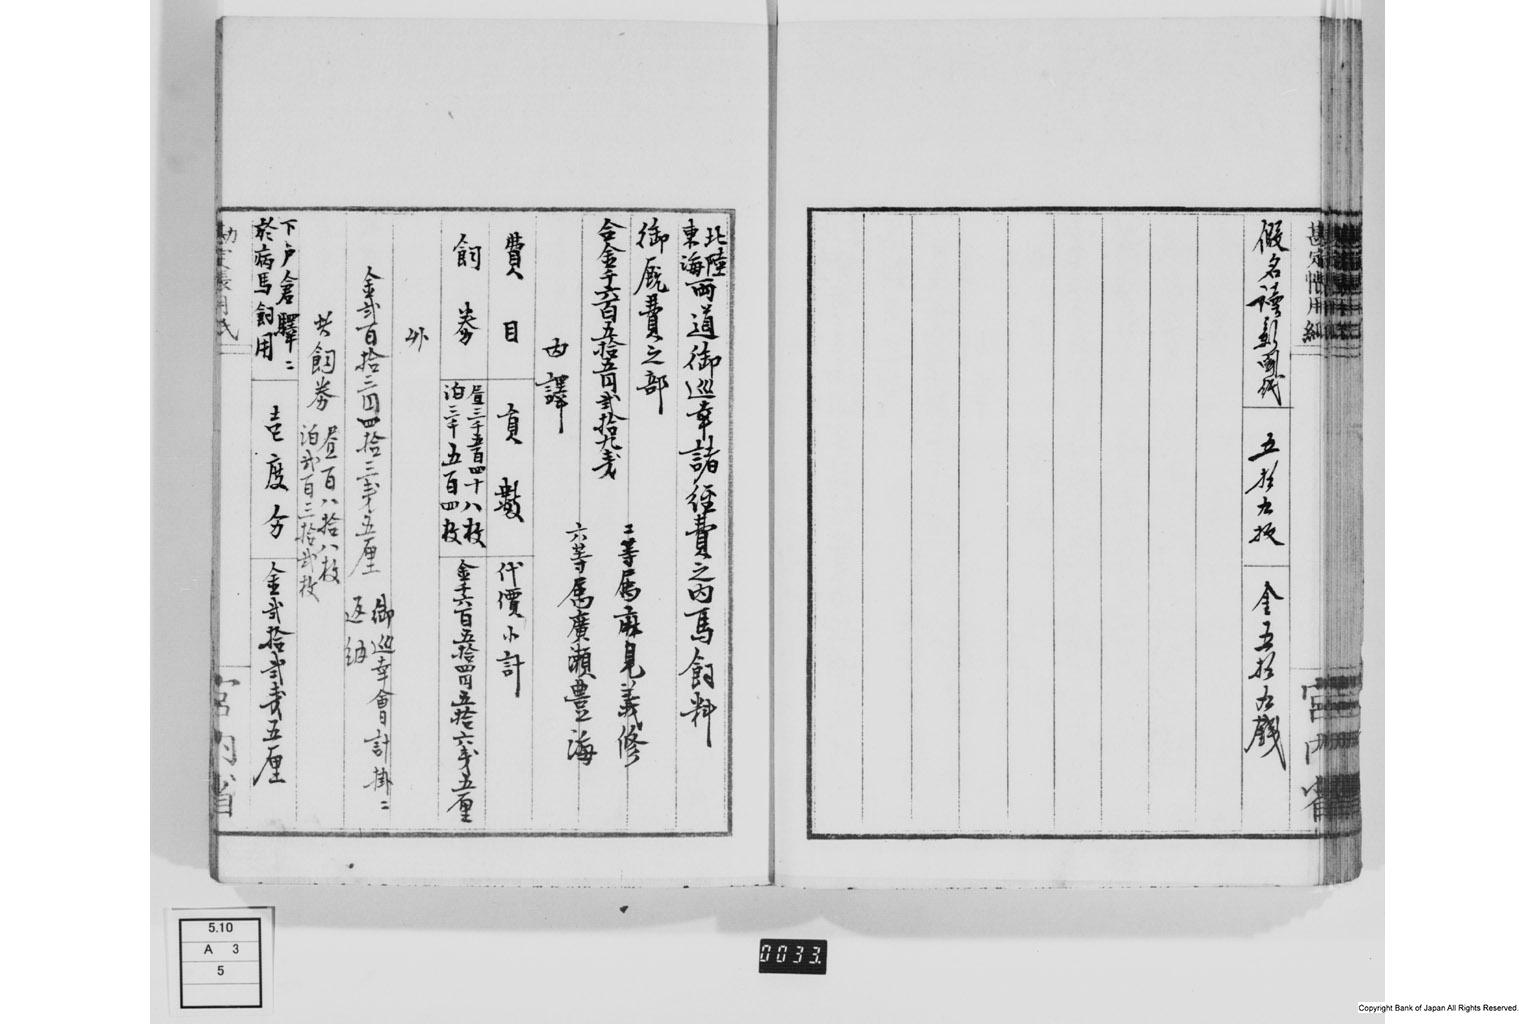 假名讀新聞紙
五拾九枚
金五拾九錢
勘定帳用紙
宮内省
北陸
東海
両道御巡幸諸経費之内馬飼料
御厩費之部
二等属麻見義修
合金千六百五拾五円弐拾九銭
六等属廣瀬豊海
内譯
費目
員數
代價小計
飼券
昼三千五百四十八枚
泊三千五百四枚
金千六百五拾四円五拾六銭五厘
外
金弐百拾三円四拾三銭五厘
御巡幸會計掛ニ
返納
此飼券
昼百八拾八枚
泊弐百三拾弐枚
下戸倉驛ニ
於病馬飼用
壱度分
金弐拾弐銭五厘
勘定帳用紙
宮内省
5.10
A 3
5
0033.
Copyright Bank of Japan All Rights Reserved.